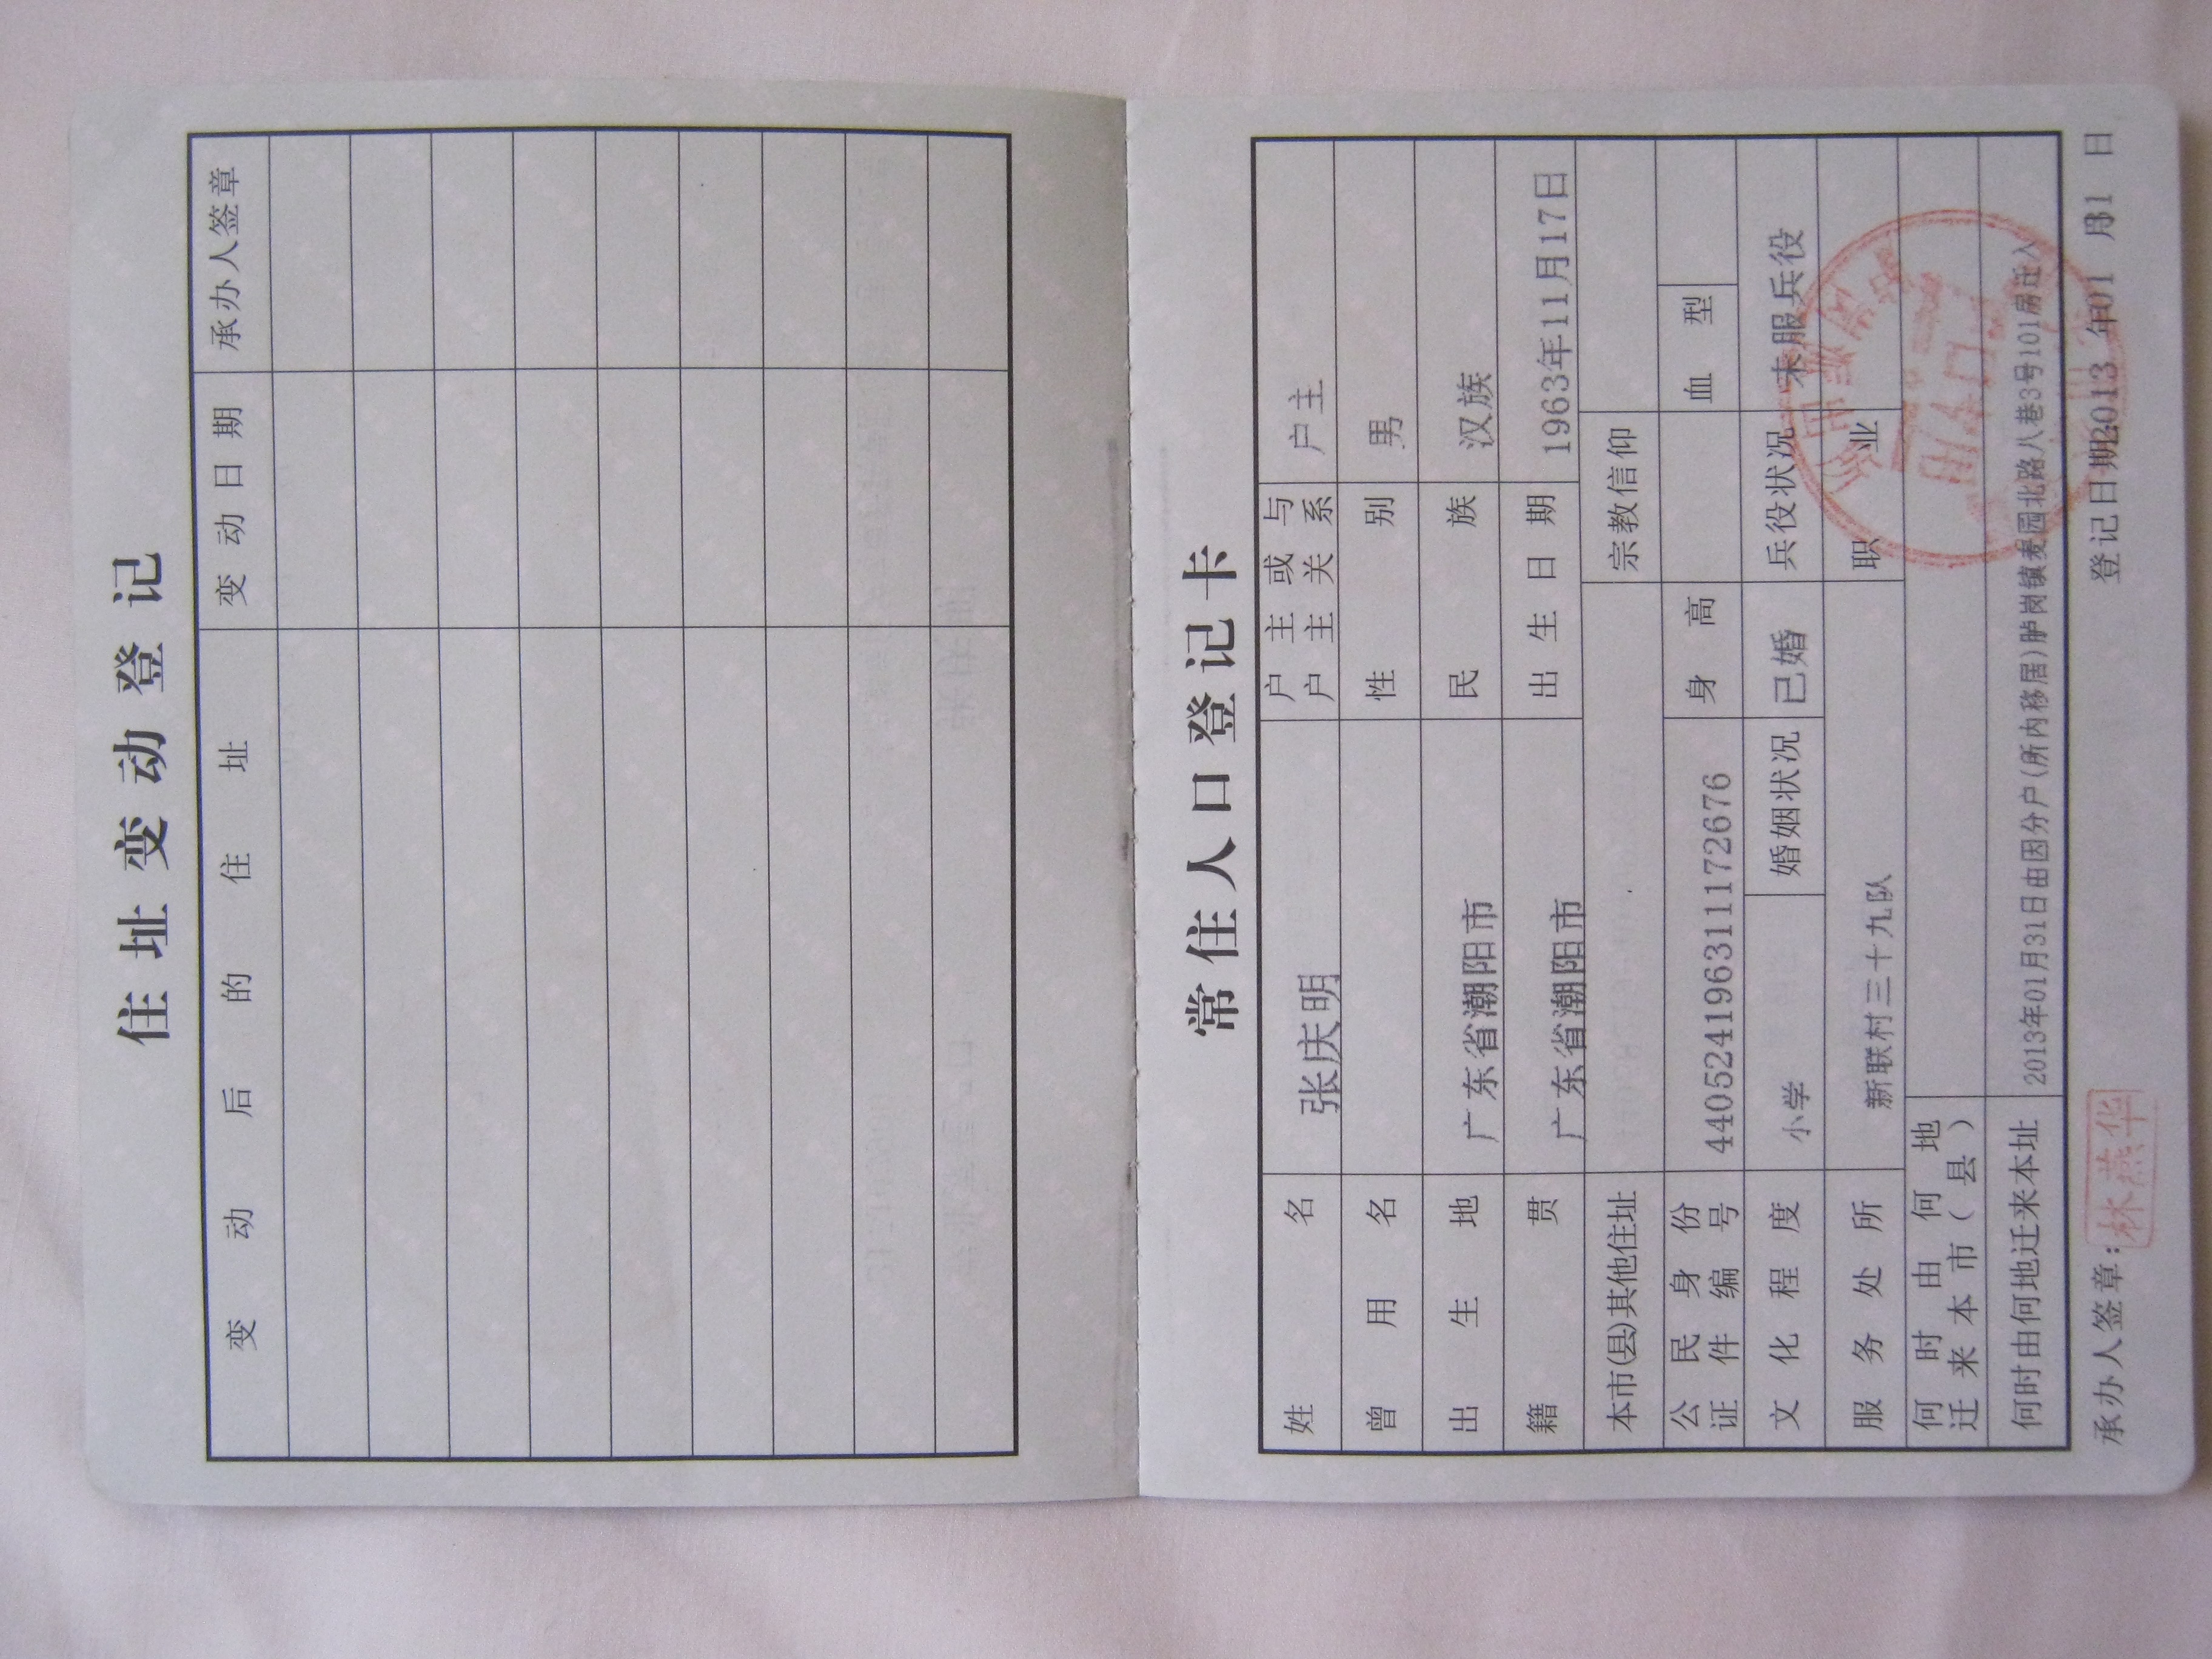 住址变动登记
变动后的住址 变动日期 承办人签章
常住人口登记卡
姓名 张庆明 户主或与户主关系 户主
曾用名 性别 男
出生地 广东省潮阳市 民族 汉族
籍贯 广东省潮阳市 出生日期 1963年11月17日
本市(县)其他住址 宗教信仰
公民身份证件编号 440524196311172676 身高 血型
文化程度 小学 婚姻状况 已婚 兵役状况 未服兵役
服务处所 新联村三十九队 职业
何时由何地迁来本市(县)
何时由何地迁来本址 2013年01月31日由因分户(所内移居)胪岗镇麦园北路八巷3号101房迁入
承办人签章: 林燕华 登记日期 2013年01月31日